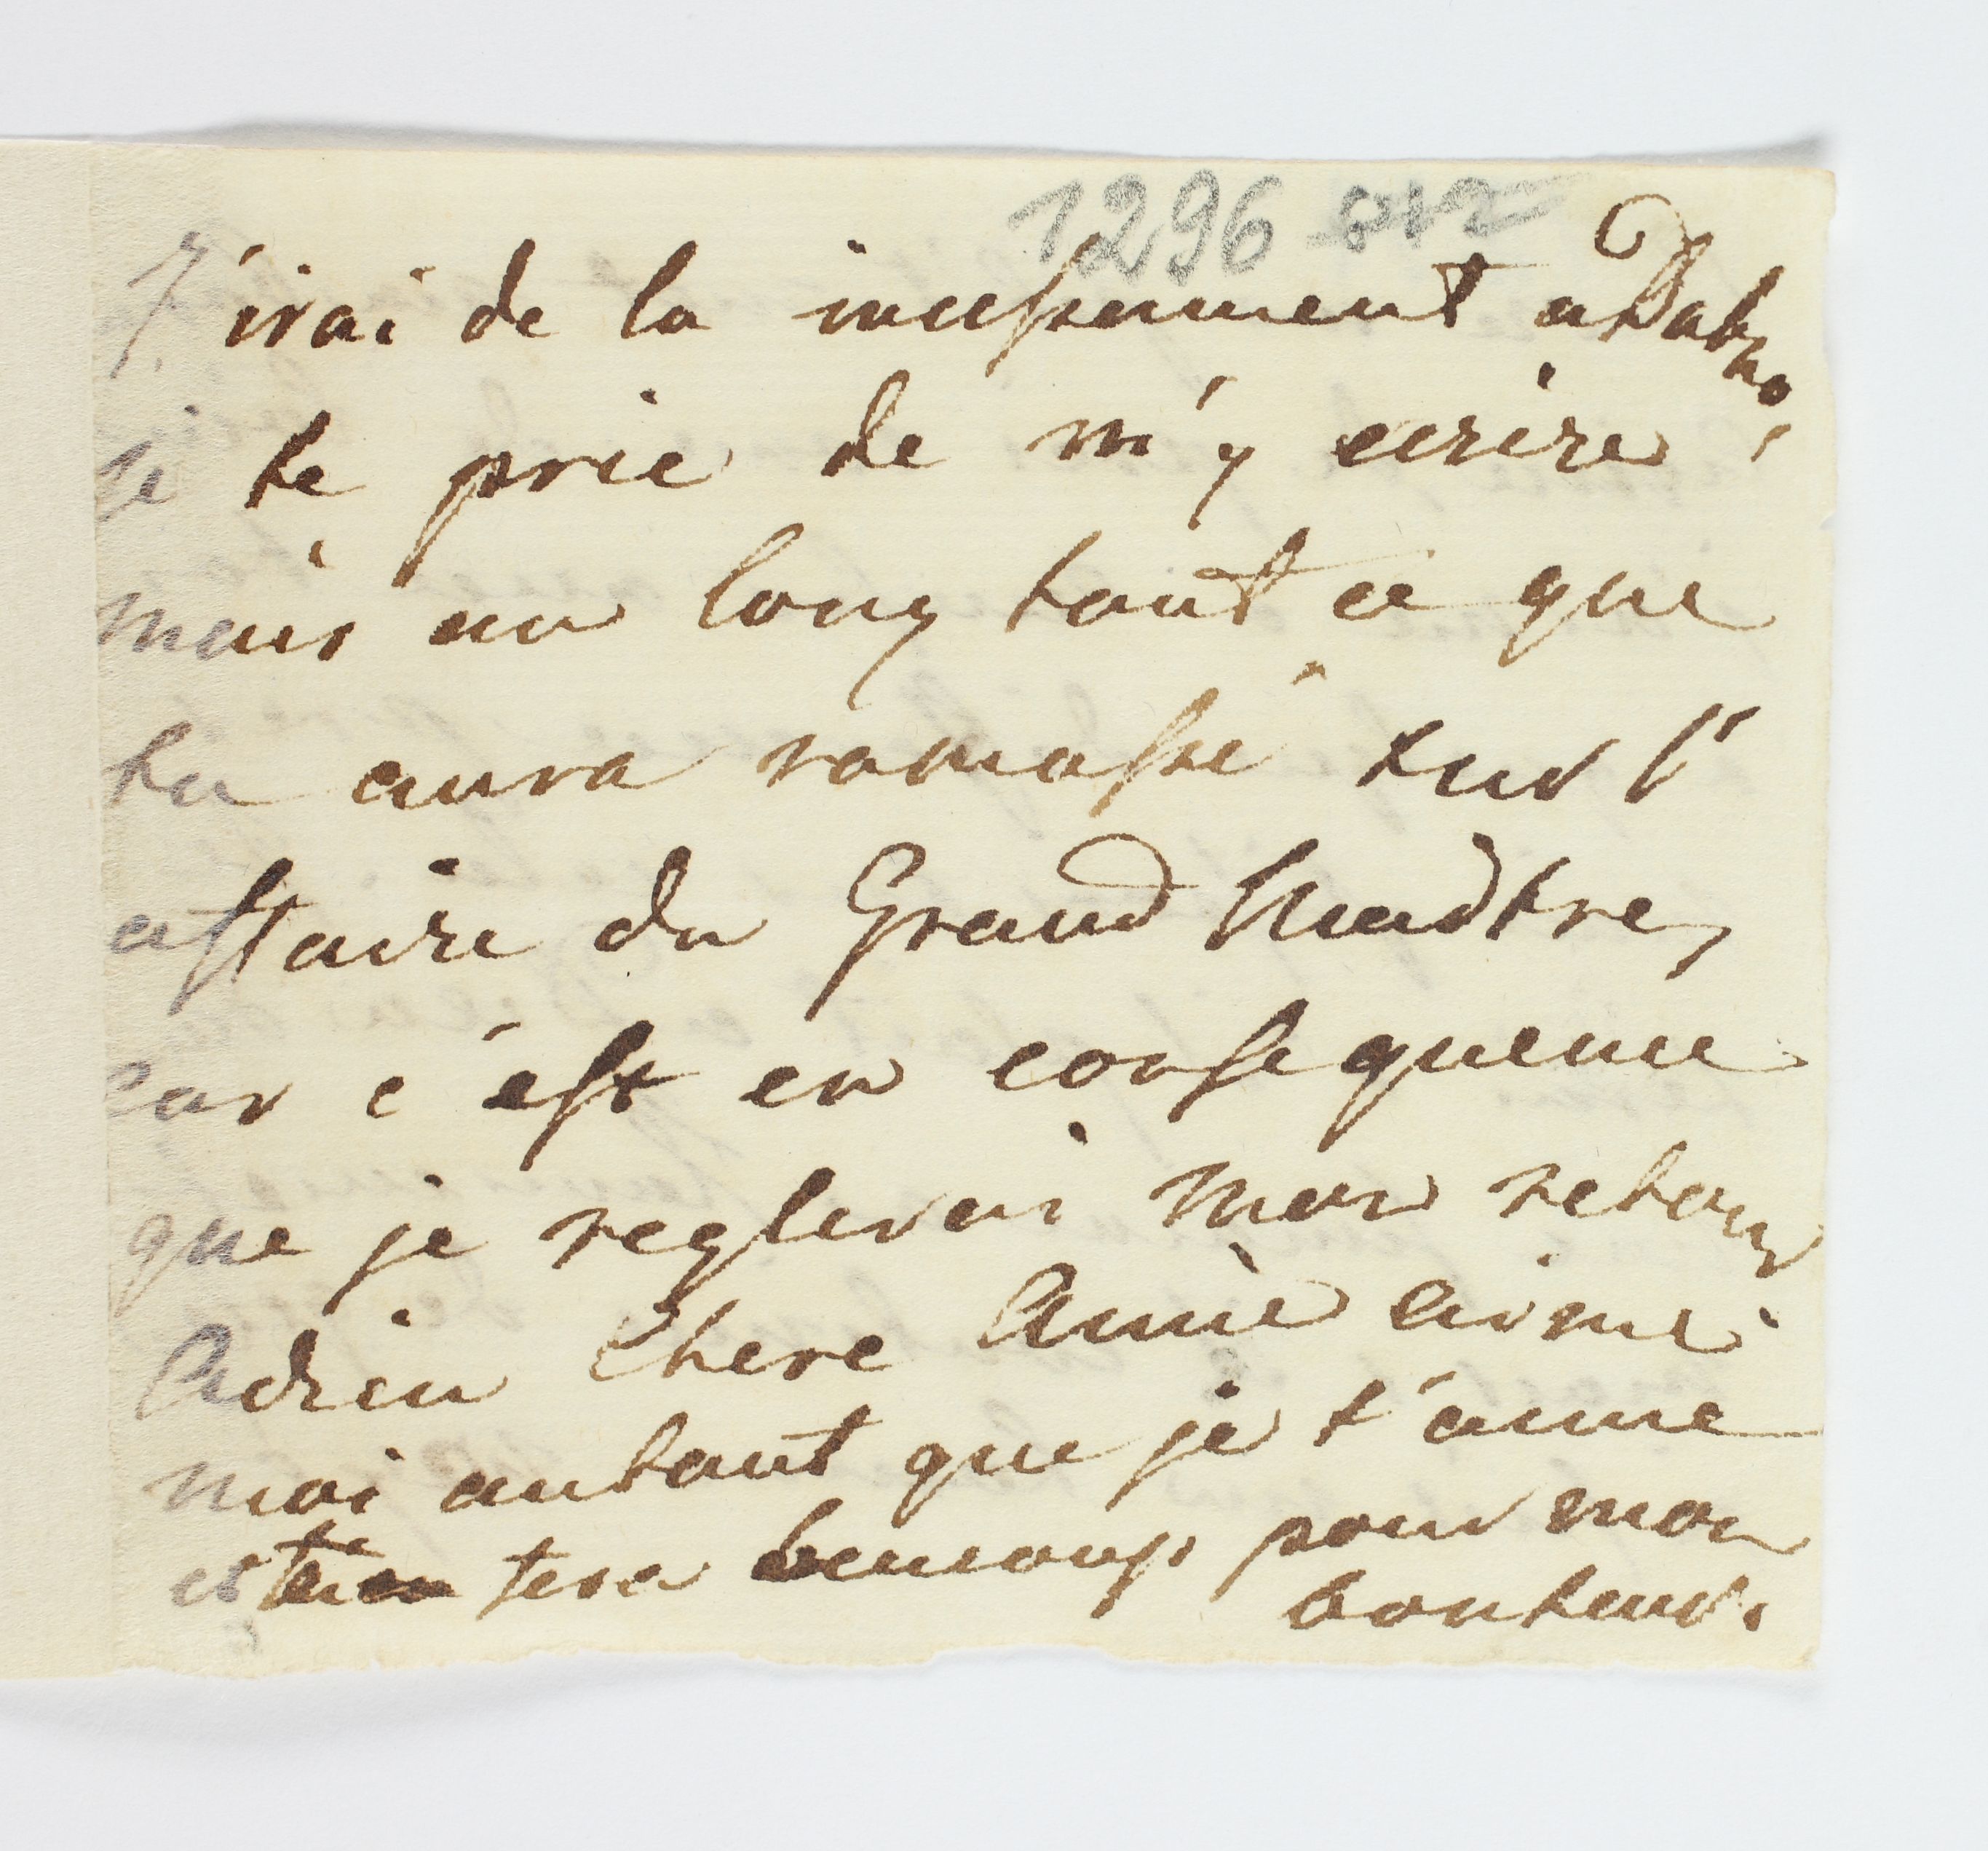 1296
J'irai de la incessamment a Dabno,
je te prie de m'y ecrire
mais au long tout ce que
tu aura ramassé sur l'
affaire du Grand Maitre,
car c'est en consequence
que je reglerai mon retour
Adieu Chere Amie aime
moi autant que je t'aime
et ce sera beaucoup pour mon
contend.